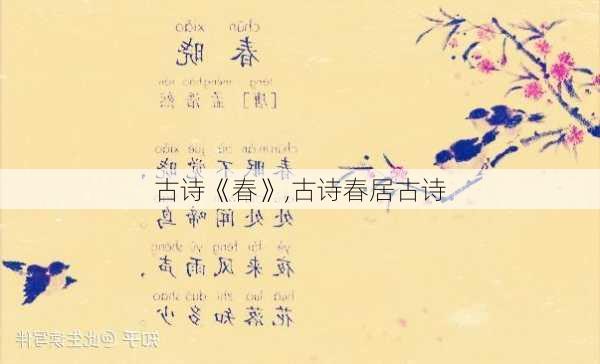 chūn xiǎo
春 晓
táng mèng hào rán
[唐] 孟 浩 然
chūn mián bù jué xiǎo
春 眠 不 觉 晓，
古诗《春》,古诗春居古诗
处 处 闻 啼 鸟。
yè lái fēng yǔ shēng
夜 来 风 雨 声，
huā luò zhī duō shǎo
花 落 知 多 少
知乎 @此生读写伴